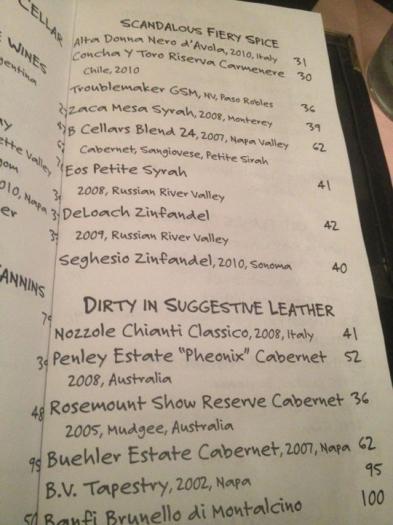 CELLAR
WINES
SCANDALOUS FIERY SPICE
Alta Donna Nero d'Avola, 2010, Italy 31
Concha Y Toro Riserva Carmenere 30
Chile, 2010
Troublemaker GSM, NV, Paso Robles 36
Zaca Mesa Syrah, 2008, Monterey 39
B Cellars Blend 24, 2007, Napa Valley 62
Cabernet, Sangiovese, Petite Sirah
Eos Petite Syrah 41
2008, Russian River Valley
DeLoach Zinfandel 42
2009, Russian River Valley
Seghesio Zinfandel, 2010, Sonoma 40
ANNINS
DIRTY IN SUGGESTIVE LEATHER
Nozzole Chianti Classico, 2008, Italy 41
Penley Estate "Pheonix" Cabernet 52
2008, Australia
48 Rosemount Show Reserve Cabernet 36
2005, Mudgee, Australia
95 Buehler Estate Cabernet, 2007, Napa 62
B.V. Tapestry, 2002, Napa 95
Banfi Brunello di Montalcino 100